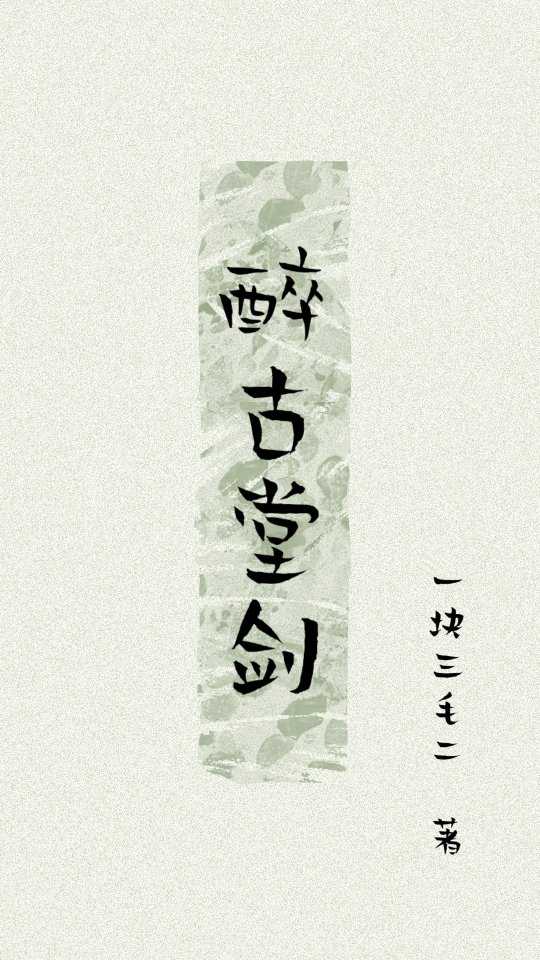 醉古堂剑
一块三毛二 著